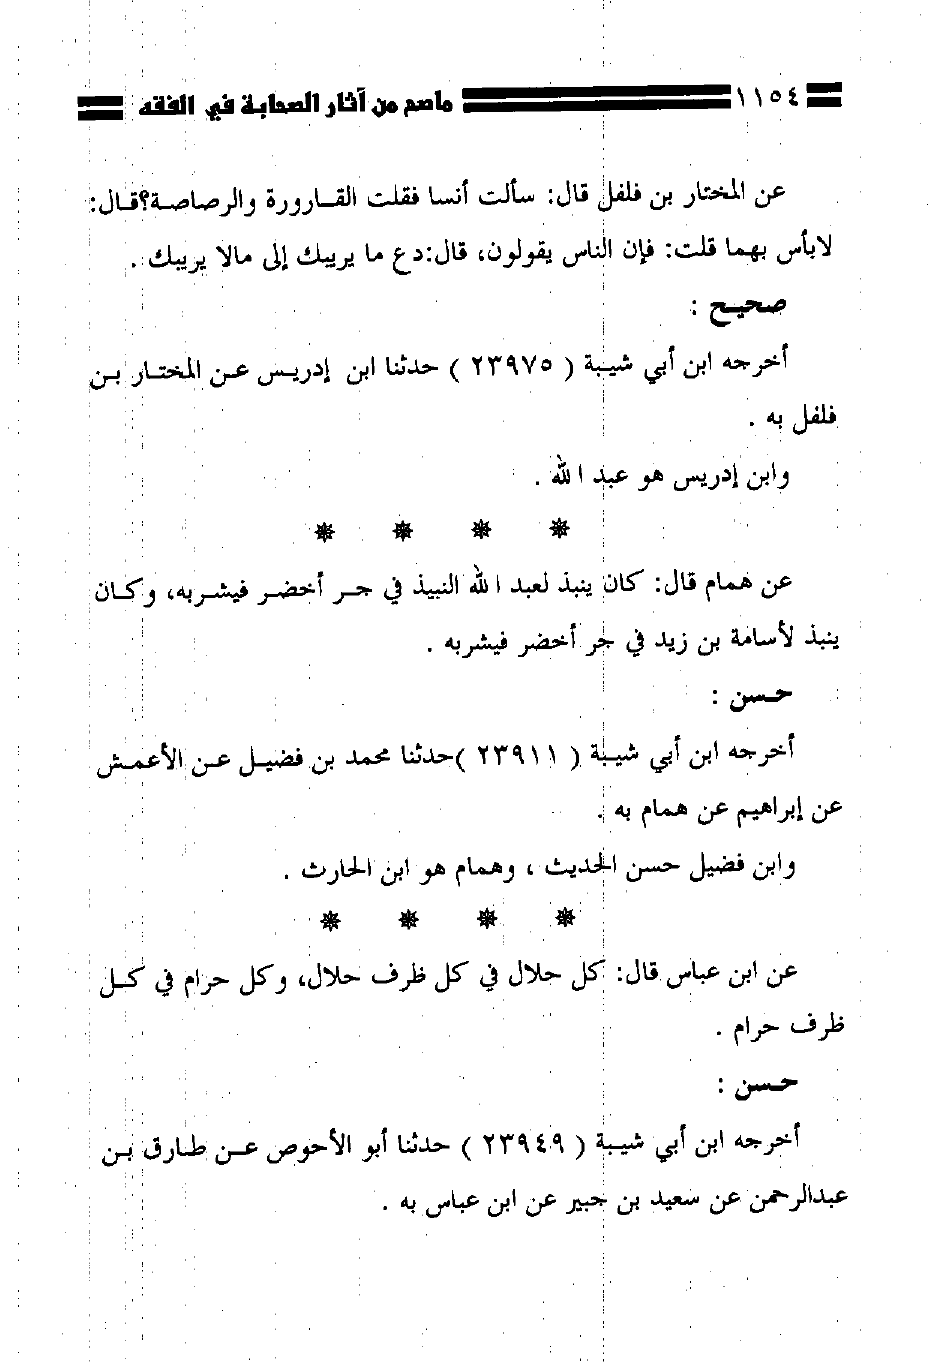 ١١٥٤ ماصح من آثار الصحابة في الفقه
عن المختار بن فلفل قال: سألت أنسا فقلت القارورة والرصاصة؟قال:
لابأس بهما قلت: فإن الناس يقولون، قال:دع ما يريبك إلى مالا يريبك .
صحيح :
أخرجه ابن أبي شيبة ( ٢٣٩٧٥ ) حدثنا ابن إدريس عن المختار بن
فلفل به .
وابن إدريس هو عبد الله .
عن همام قال: كان ينبذ لعبد الله النبيذ في جر أخضر فيشربه، وكان
ينبذ لأسامة بن زيد في جر أخضر فيشربه .
حسن :
أخرجه ابن أبي شيبة ( ٢٣٩١١ )حدثنا محمد بن فضيل عن الأعمش
عن إبراهيم عن همام به .
وابن فضيل حسن الحديث ، وهمام هو ابن الحارث .
عن ابن عباس قال: كل حلال في كل ظرف حلال، وكل حرام في كل
ظرف حرام .
حسن :
أخرجه ابن أبي شيبة ( ٢٣٩٤٩ ) حدثنا أبو الأحوص عن طارق بن
عبدالرحمن عن سعيد بن جبير عن ابن عباس به .